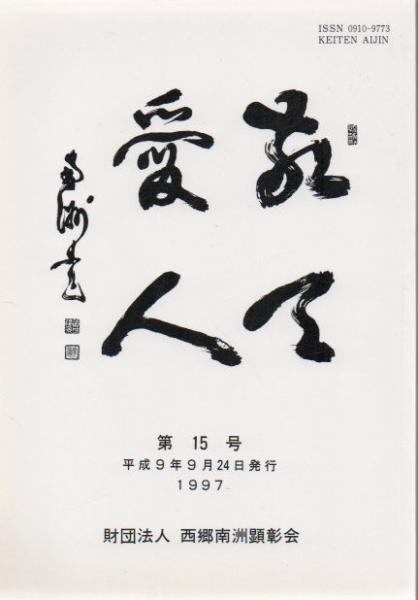 ISSN 0910-9773
KEITEN AIJIN
敬天
愛人
南洲書
第 15 号
平成9年9月24日発行
1997
財団法人 西郷南洲顕彰会